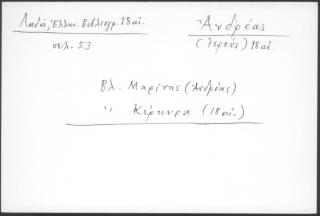 Λαδά, Ἑλλην. Βιβλιογρ. 18 αἰ.
σελ. 53
Ἀνδρέας
(Ἱερεύς) 18 αἰ.
Βλ. Μαρίνης (Ἀνδρέας)
〃 Κέρκυρα (18 αἰ.)